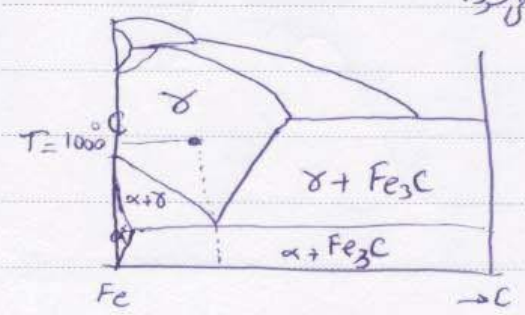 γ
T = 1000°C
α+γ
γ + Fe₃C
α
α + Fe₃C
Fe
→ C